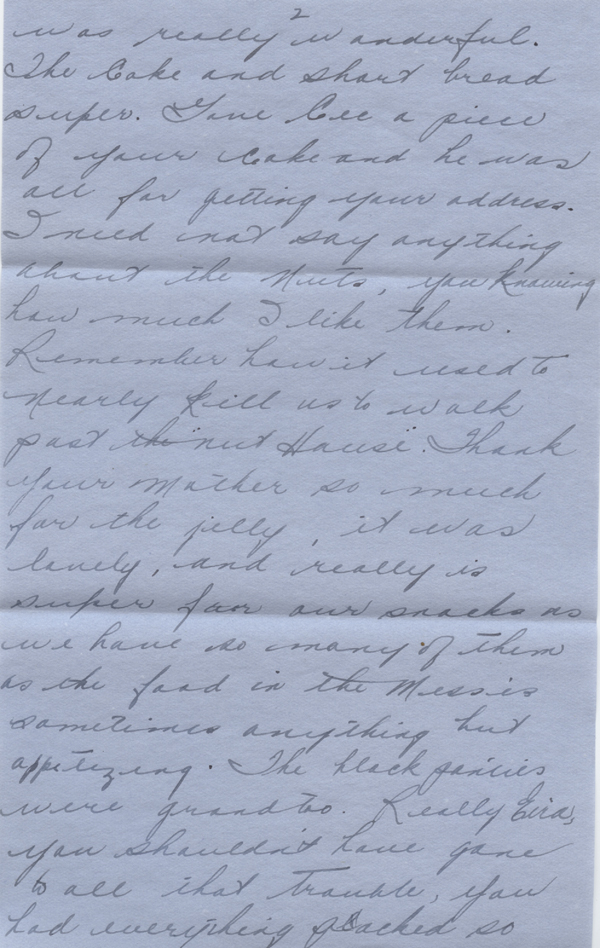 2
was really wonderful.
The Cake and short bread
super. Gave Cec a piece
of your cake and he was
all for getting your address.
I need not say anything
about the Nuts, you knowing
how much I like them.
Remember how it used to
nearly kill us to walk
past the "nut House". Thank
your mother so much
for the jelly, it was
lovely, and really is
super for our snacks as
we have so many of them
as the food in the Mess is
sometimes anything but
appetizing. The black panties
were grand too. Really Eira,
you shouldn't have gone
to all that trouble, you
had everything packed so